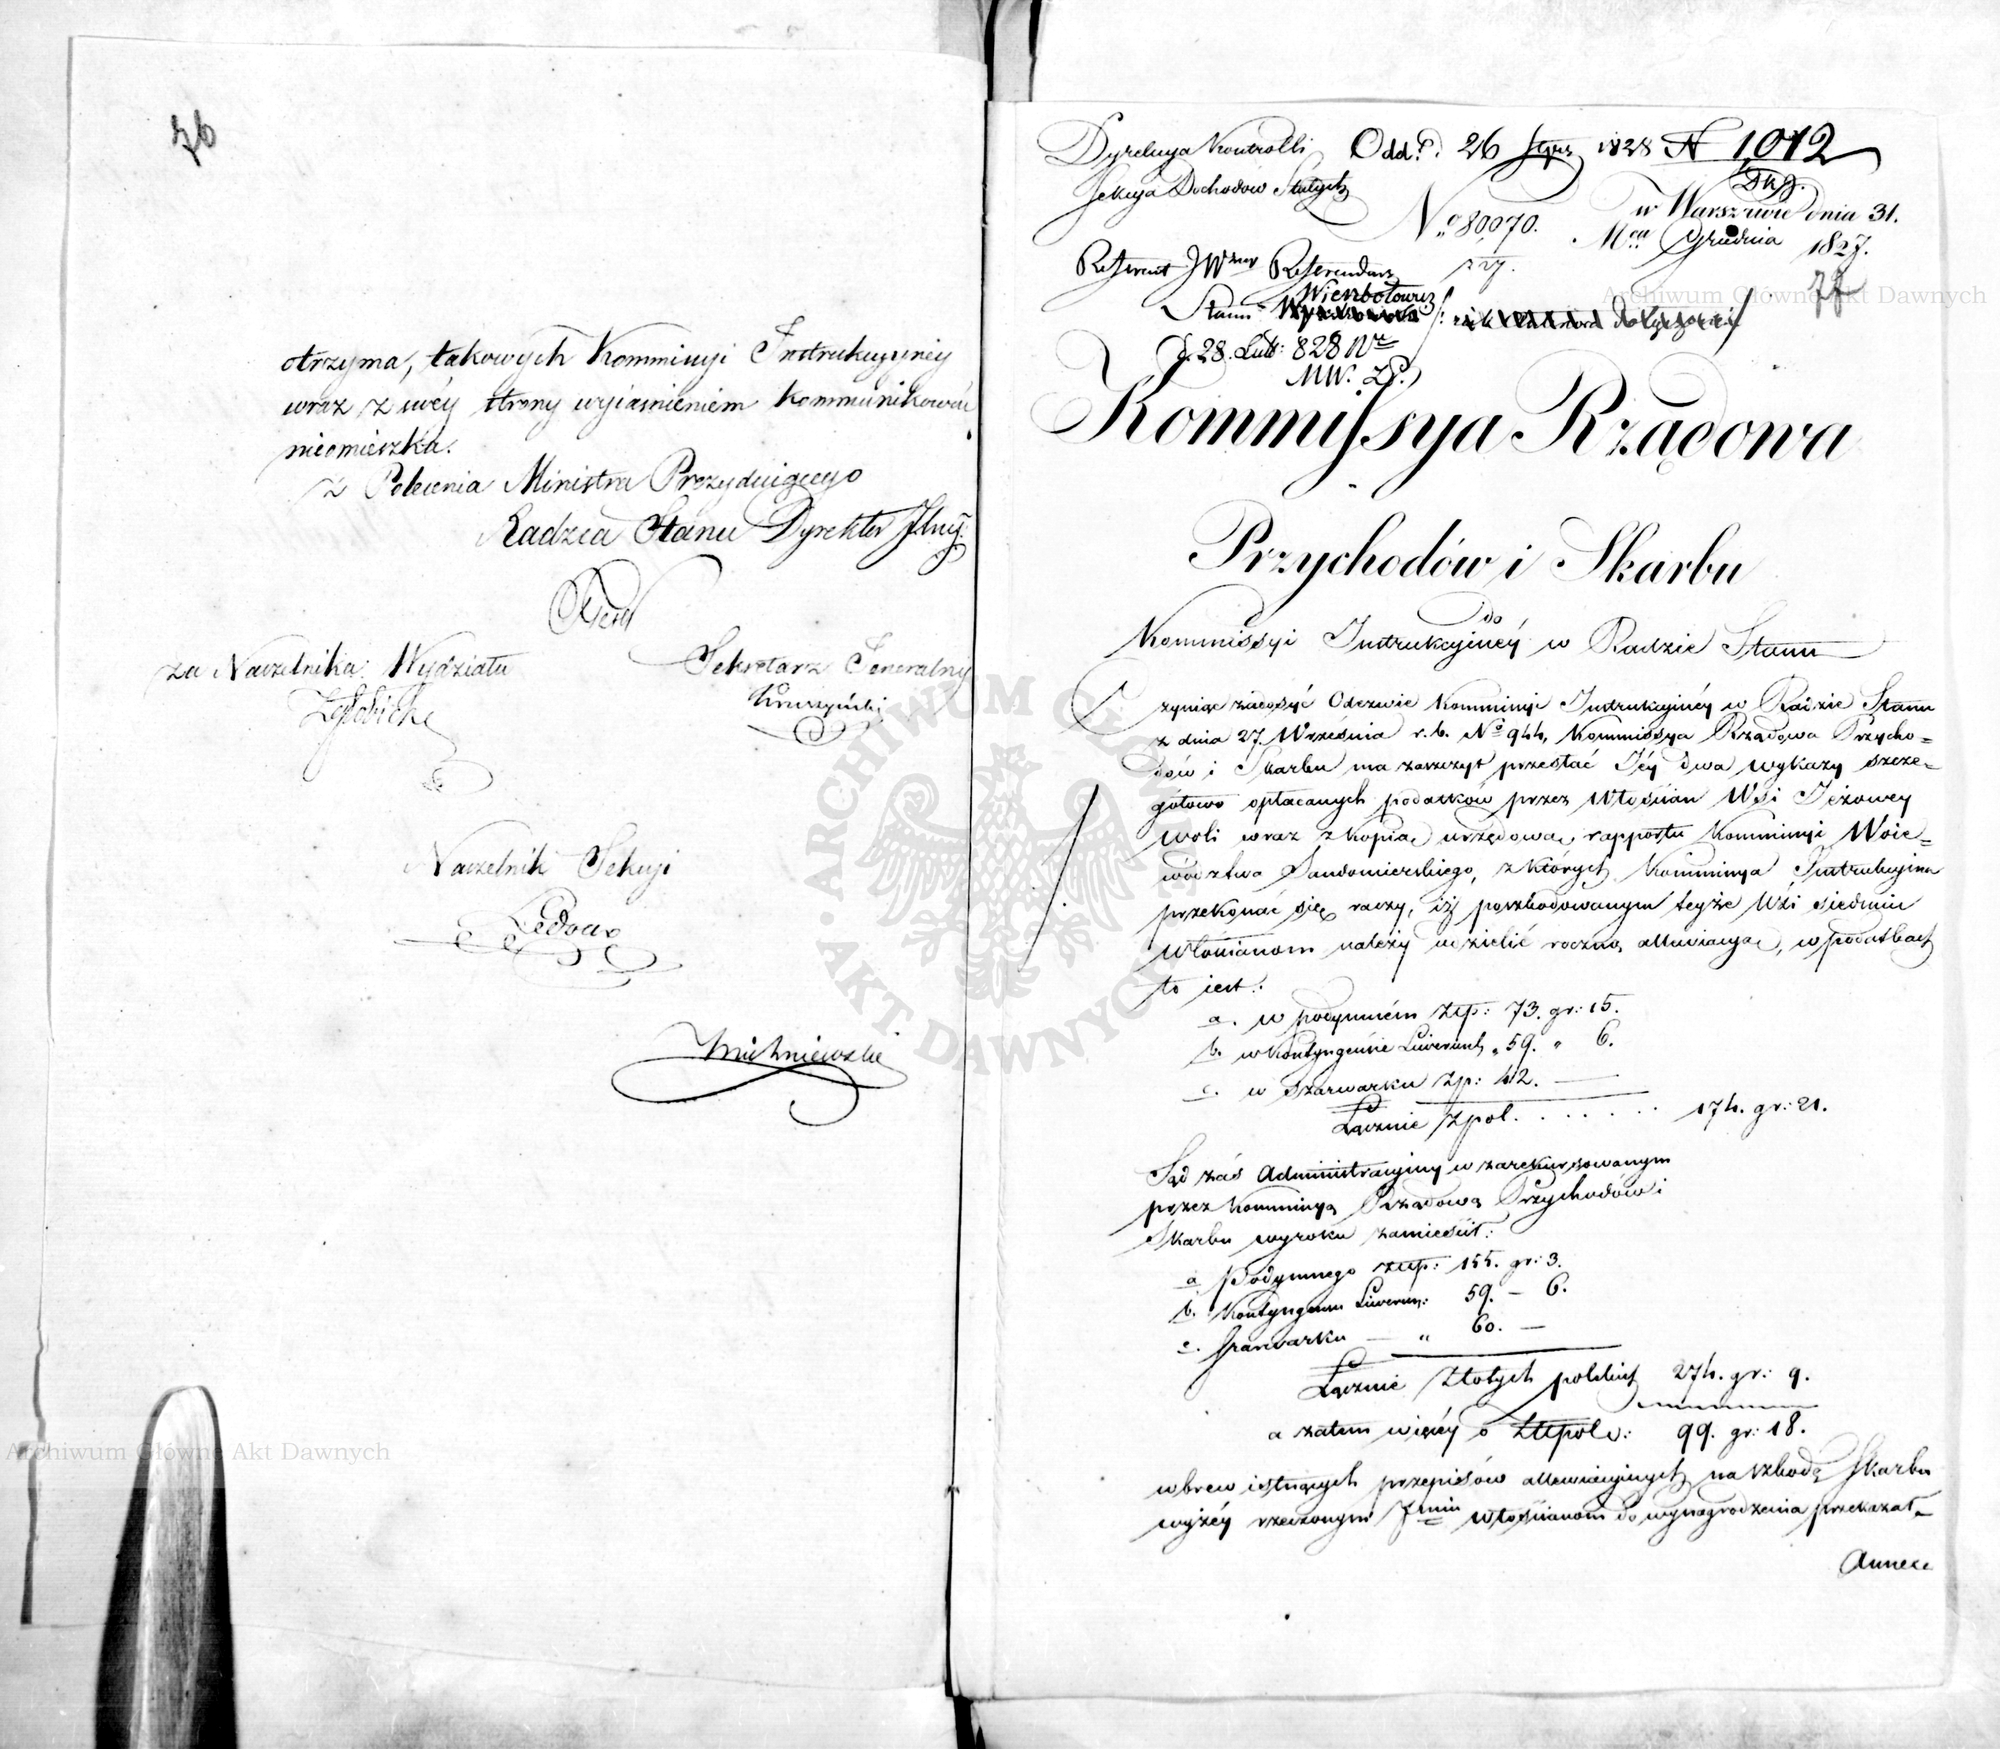 76
otrzyma, takowych Kommissyi Instrukcyjnéy
wraz z swéy strony wyjaśnieniem kommunikować
nieomieszka.
z Polecenia Ministra Prezydującego
Radzca Stanu Dyrektor Jlny:
Za Naczelnika Wydziału
Sekretarz Generalny
Kruszyński
Naczelnik Sekcyi
Dyrekcya Kontrolli
Oddo. 26 Stycz 1828 N 1012
Sekcya Dochodów Stałych
No 80070.
w Warszawie dnia 31.
Mca Grudnia 1827.
77
Referent JWzny Referendarz
Stanu Wierzbołowicz
d. 28. Lut: 828 Nr
Kommissya Rządowa
Przychodów i Skarbu
do
Kommissyi Instrukcyinéy w Radzie Stanu
Czyniąc zadosyć Odezwie Kommissyi Instrukcyinéy w Radzie Stanu
z dnia 27. Września r. b. No 944, Kommissya Rządowa Przycho=
dów i Skarbu ma zaszczyt przesłać Jéy dwa wykazy szcze=
gółowo opłacanych podatków przez Włościan Wsi Jeżowey
woli wraz z kopią urzędową rapportu Kommissyi Woie=
wództwa Sandomierskiego, z których Kommissya Instrukcyina
przekonać się raczy, iż poszkodowanym teyże Wsi siedmiu
włościanom należy udzielić roczną allewiacyą, w podatkach
to iest:
a. w podymném złp: 73. gr: 15.
b. w Kontyngensie Liwerunk „ 59. „ 6.
c. w Szarwarku zp: 42. —
Łącznie zpol. . . . . . . 174. gr: 21.
Sąd zaś Administracyjny w zarekursowanym
przez Kommissyą Rządową Przychodów i
Skarbu wyroku zamieścił:
a Podymnego złp: 155. gr: 3.
b. Kontyngensu Liwerun: 59. — 6.
c. Szarwarku — „ 60. —
Łącznie Złotych polskich 274. gr: 9.
a zatem więcéy o Złtpols: 99. gr: 18.
wbrew istnących przepisów allewiacyinych na szkodę Skarbu
wyżéy rzeczonym 7miu włościanom do wynagrodzenia przekazał.
Annexe
Archiwum Główne Akt Dawnych
Archiwum Główne Akt Dawnych
ARCHIWUM GŁÓWNE AKT DAWNYCH